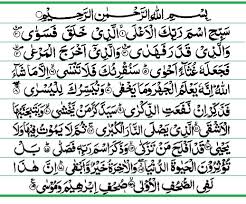 بِسْمِ اللهِ الرَّحْمٰنِ الرَّحِيْمِ
سَبِّحِ اسْمَ رَبِّكَ الْاَعْلَى ۙ الَّذِيْ خَلَقَ فَسَوّٰى ۙ
وَالَّذِيْ قَدَّرَ فَهَدٰى ۙ وَالَّذِيْٓ اَخْرَجَ الْمَرْعٰى ۙ
فَجَعَلَهٗ غُثَآءً اَحْوٰى ۙ سَنُقْرِئُكَ فَلَا تَنْسٰٓى ۙ اِلَّا مَا شَآءَ
اللهُ اِنَّهٗ يَعْلَمُ الْجَهْرَ وَمَا يَخْفٰى ۙ وَنُيَسِّرُكَ لِلْيُسْرٰى ۙ
فَذَكِّرْ اِنْ نَّفَعَتِ الذِّكْرٰى ۙ سَيَذَّكَّرُ مَنْ يَّخْشٰى ۙ وَيَتَجَنَّبُهَا
الْاَشْقَى ۙ الَّذِيْ يَصْلَى النَّارَ الْكُبْرٰى ۚ ثُمَّ لَا يَمُوْتُ فِيْهَا
وَلَا يَحْيٰى ۙ قَدْ اَفْلَحَ مَنْ تَزَكّٰى ۙ وَذَكَرَ اسْمَ رَبِّهٖ فَصَلّٰى ۙ بَلْ
تُؤْثِرُوْنَ الْحَيٰوةَ الدُّنْيَا ۙ وَالْاٰخِرَةُ خَيْرٌ وَّاَبْقٰى ۙ اِنَّ هٰذَا
لَفِي الصُّحُفِ الْاُوْلٰى ۙ صُحُفِ اِبْرٰهِيْمَ وَمُوْسٰى